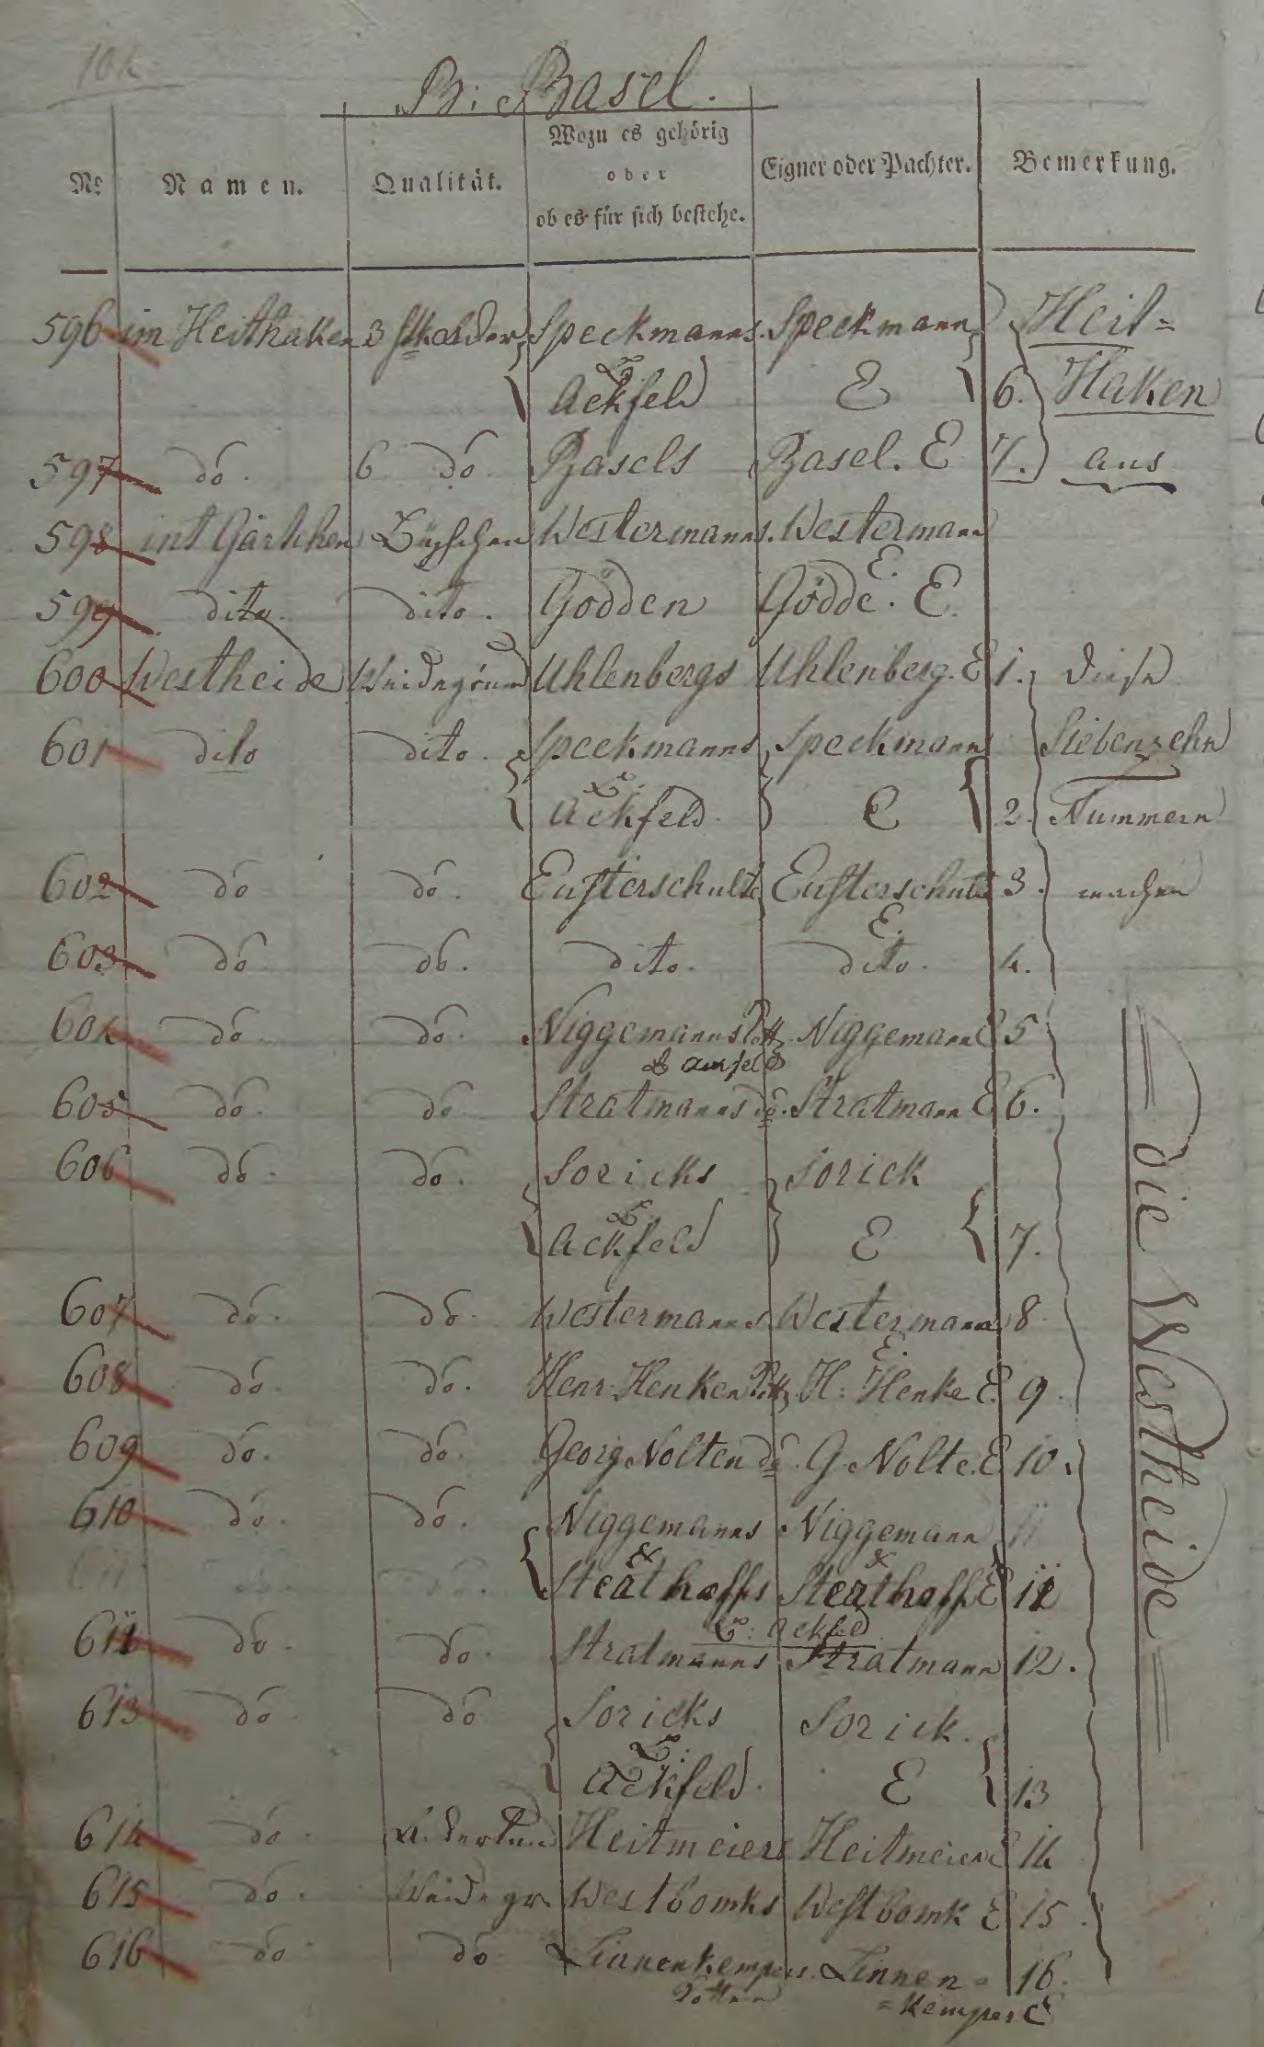 104
B: Basel.
No Namen. Qualität. Wozu es gehörig oder ob es für sich bestehe. Eigner oder Pachter. Bemerkung.
596 im Heithaken 3 Speckmanns Speckmann Heit=
Ackfeld E 6. Haken
597 do. 6 do. Basels Basel. E 7. aus
598 int Gärtchen Westermanns. Westermann
E.
599 dito. dito. Gödden Gödde. E.
600 Westheide Weidegrund Uhlenbergs Uhlenberg. E 1. diese
601 dito dito. Speckmanns Speckmann Siebenzehn
Ackfeld. E 2. Nummern
602 do do. Eusterschulte Eusterschulte 3. machen
E.
603 do. do. dito. dito. 4.
604 do. do. Niggemanns Niggemann E 5
605 do. do Stratmanns do. Stratmann E 6.
606 do. do. Soricks Sorick
Ackfeld E 7.
607 do. do. Westermanns Westermann 8
E.
608 do. do. Henr: Henken H: Henke E. 9.
609 do. do. Georg Nolten do. G. Nolte. E 10.
610 do. do. Niggemanns Niggemann 11
& &
Strathoffs Strathoff E 11
Ackfeld
611 do. do. Stratmanns Stratmann 12.
613 do do Soricks Sorick.
Ackfeld. E 13
614 do. Ackerland Heitmeiers Heitmeier E 14
615 do. Weidegr. Westbomks Westbomk E 15.
616 do. do Linnenkempers. Linnen= 16.
=kemper E
die Westheide